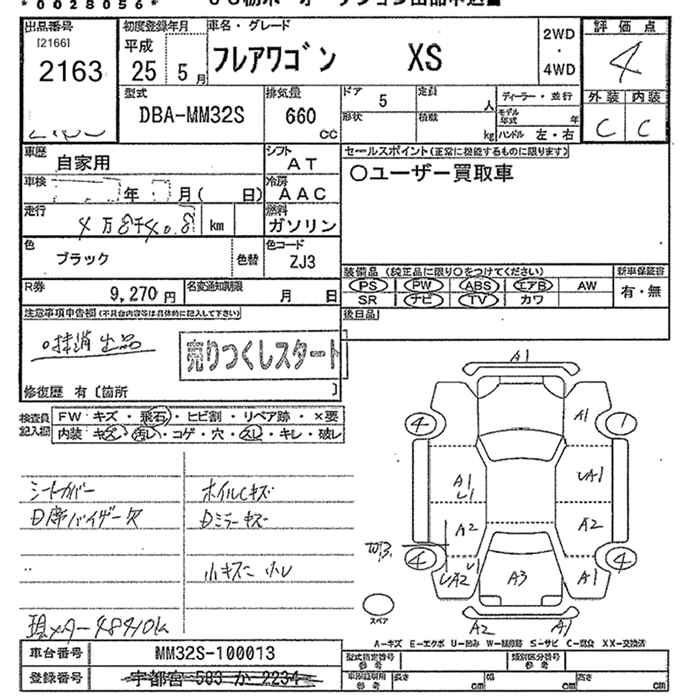 *0028056*
出品番号
[2166]
2163
初度登録年月
平成
25 5月
車名・グレード
フレアワゴン XS
2WD
・
4WD
評価点
4
外装 内装
C C
型式
DBA-MM32S
排気量
660
cc
ドア 5
形状
定員 人
積載 kg
ディーラー・並行
モデル年式 年
ハンドル 左・右
車歴 自家用
シフト AT
セールスポイント(正常に機能するものに限ります)
○ユーザー買取車
車検 年 月( 日)
冷房 AAC
走行 4万8千40.8 km
燃料 ガソリン
色 ブラック 色替
色コード ZJ3
R券 9,270円
名変通知期限 月 日
装備品(純正品に限り○をつけてください)
PS PW ABS エアB AW
SR ナビ TV カワ
新車保証書
有・無
後日品
注意事項申告欄(不具合内容等は具体的に記入して下さい)
抹消出品
売りつくしスタート
修復歴 有〔箇所 〕
検査員記入欄
FW キズ・飛石・ヒビ割・リペア跡・×要
内装 キズ・汚レ・コゲ・穴・スレ・キレ・破レ
シートカバー
D席バイザー欠
ホイルCキズ
Dミラーキズ
小キズ
現メーター48410k
A1
4
A1
1
A1
U1
UA1
A2
A2
4
UA2
A3
A1
4
スペア
A2
A1
A-キズ E-エクボ U-凹み W-補修跡 S-サビ C-腐食 XX-交換済
車台番号 MM32S-100013
登録番号 宇都宮 583 か 2234
型式指定番号 参考
類別区分番号 参考
車輌縦横用 参考 長さ cm 幅 cm 高さ cm